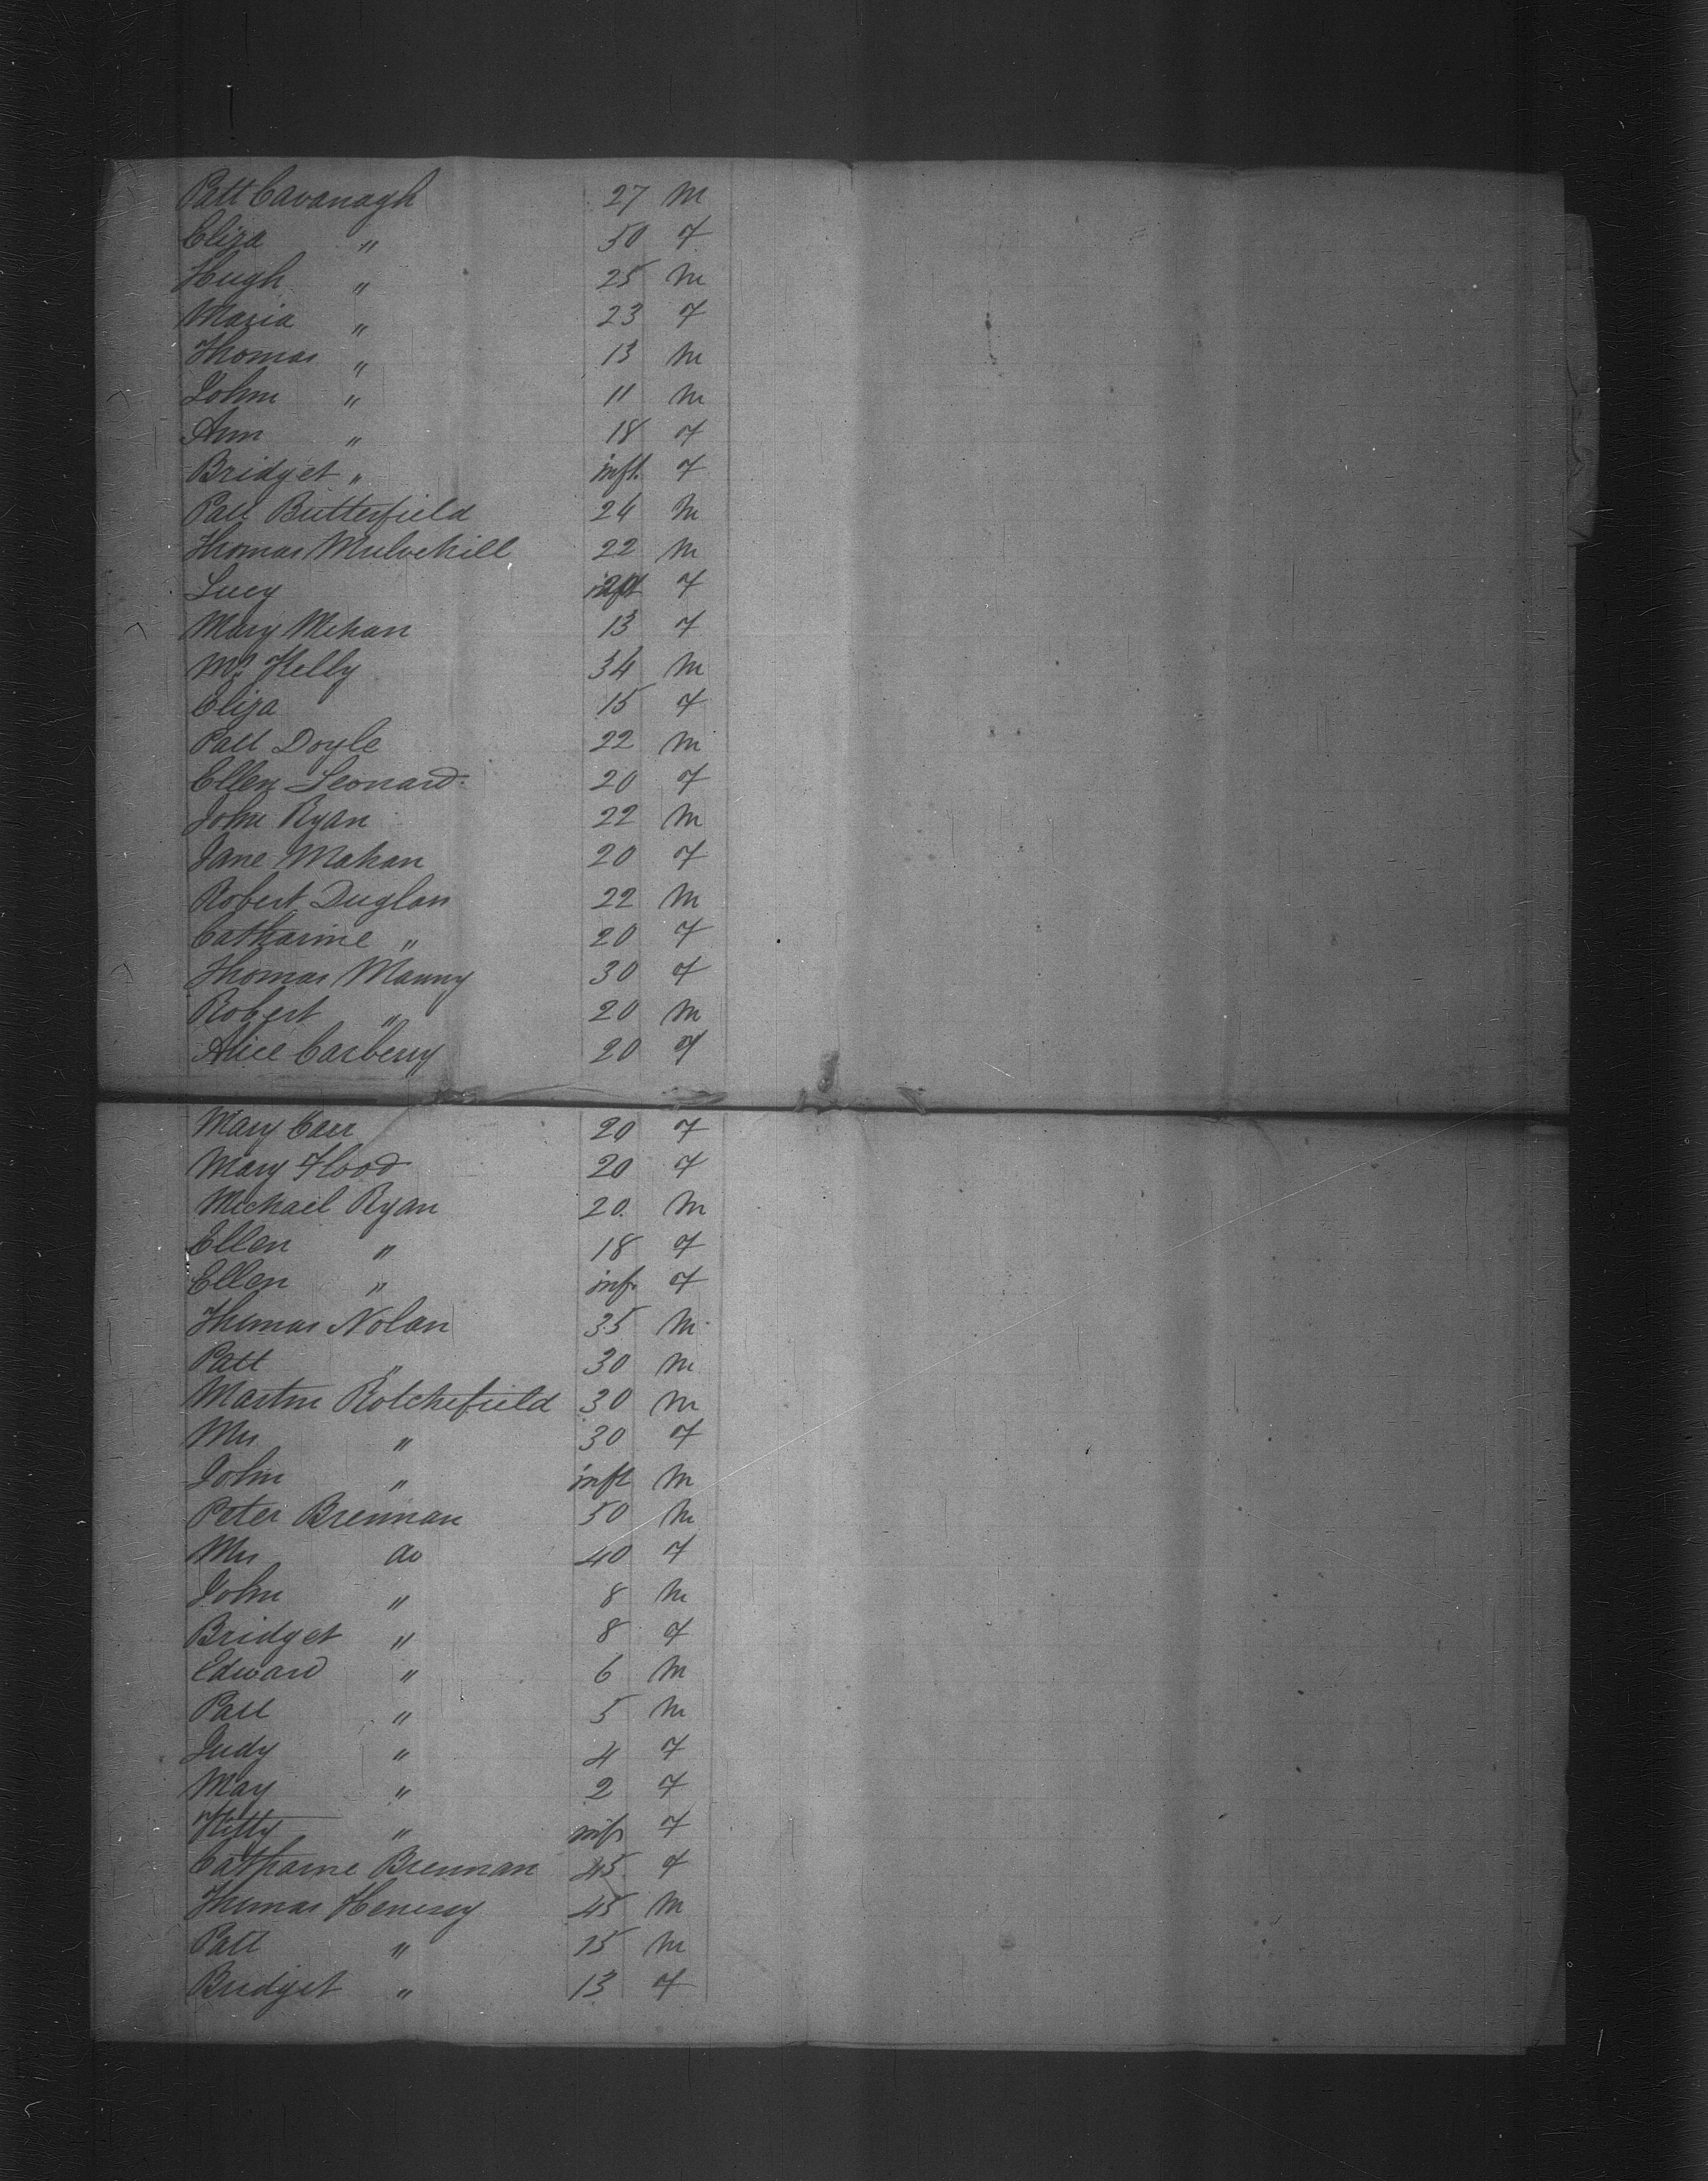 Patt Cavanagh 27 m
Eliza " 50 f
Hugh " 25 m
Maria " 23 f
Thomas " 13 m
John " 11 m
Ann " 18 f
Bridget " inft. f
Patt Butterfield 24 m
Thomas Mulvehill 22 m
Lucy f
Mary Mehan 13 f
Mr. Kelly 34 m
Eliza 15 f
Patt Doyle 22 m
Ellen Leonard 20 f
John Ryan 22 m
Jane Mahan 20 f
Robert Duglan 22 m
Catharine " 20 f
Thomas Manny 30 f
Robert " 20 m
Alice Carberry 20 f
Mary Carr 20 f
Mary Flood 20 f
Michael Ryan 20 m
Ellen " 18 f
Ellen " inf. f
Thomas Nolan 35 m
Patt " 30 m
Martin Rotchefield 30 m
Mrs " 30 f
John " inft m
Peter Brennan 50 m
Mrs do 40 f
John " 8 m
Bridget " 8 f
Edward " 6 m
Patt " 5 m
Judy " 4 f
May " 2 f
Kitty " inf f
Catharine Brennan 45 f
Thomas Henessy 45 m
Patt " 15 m
Bridget " 13 f